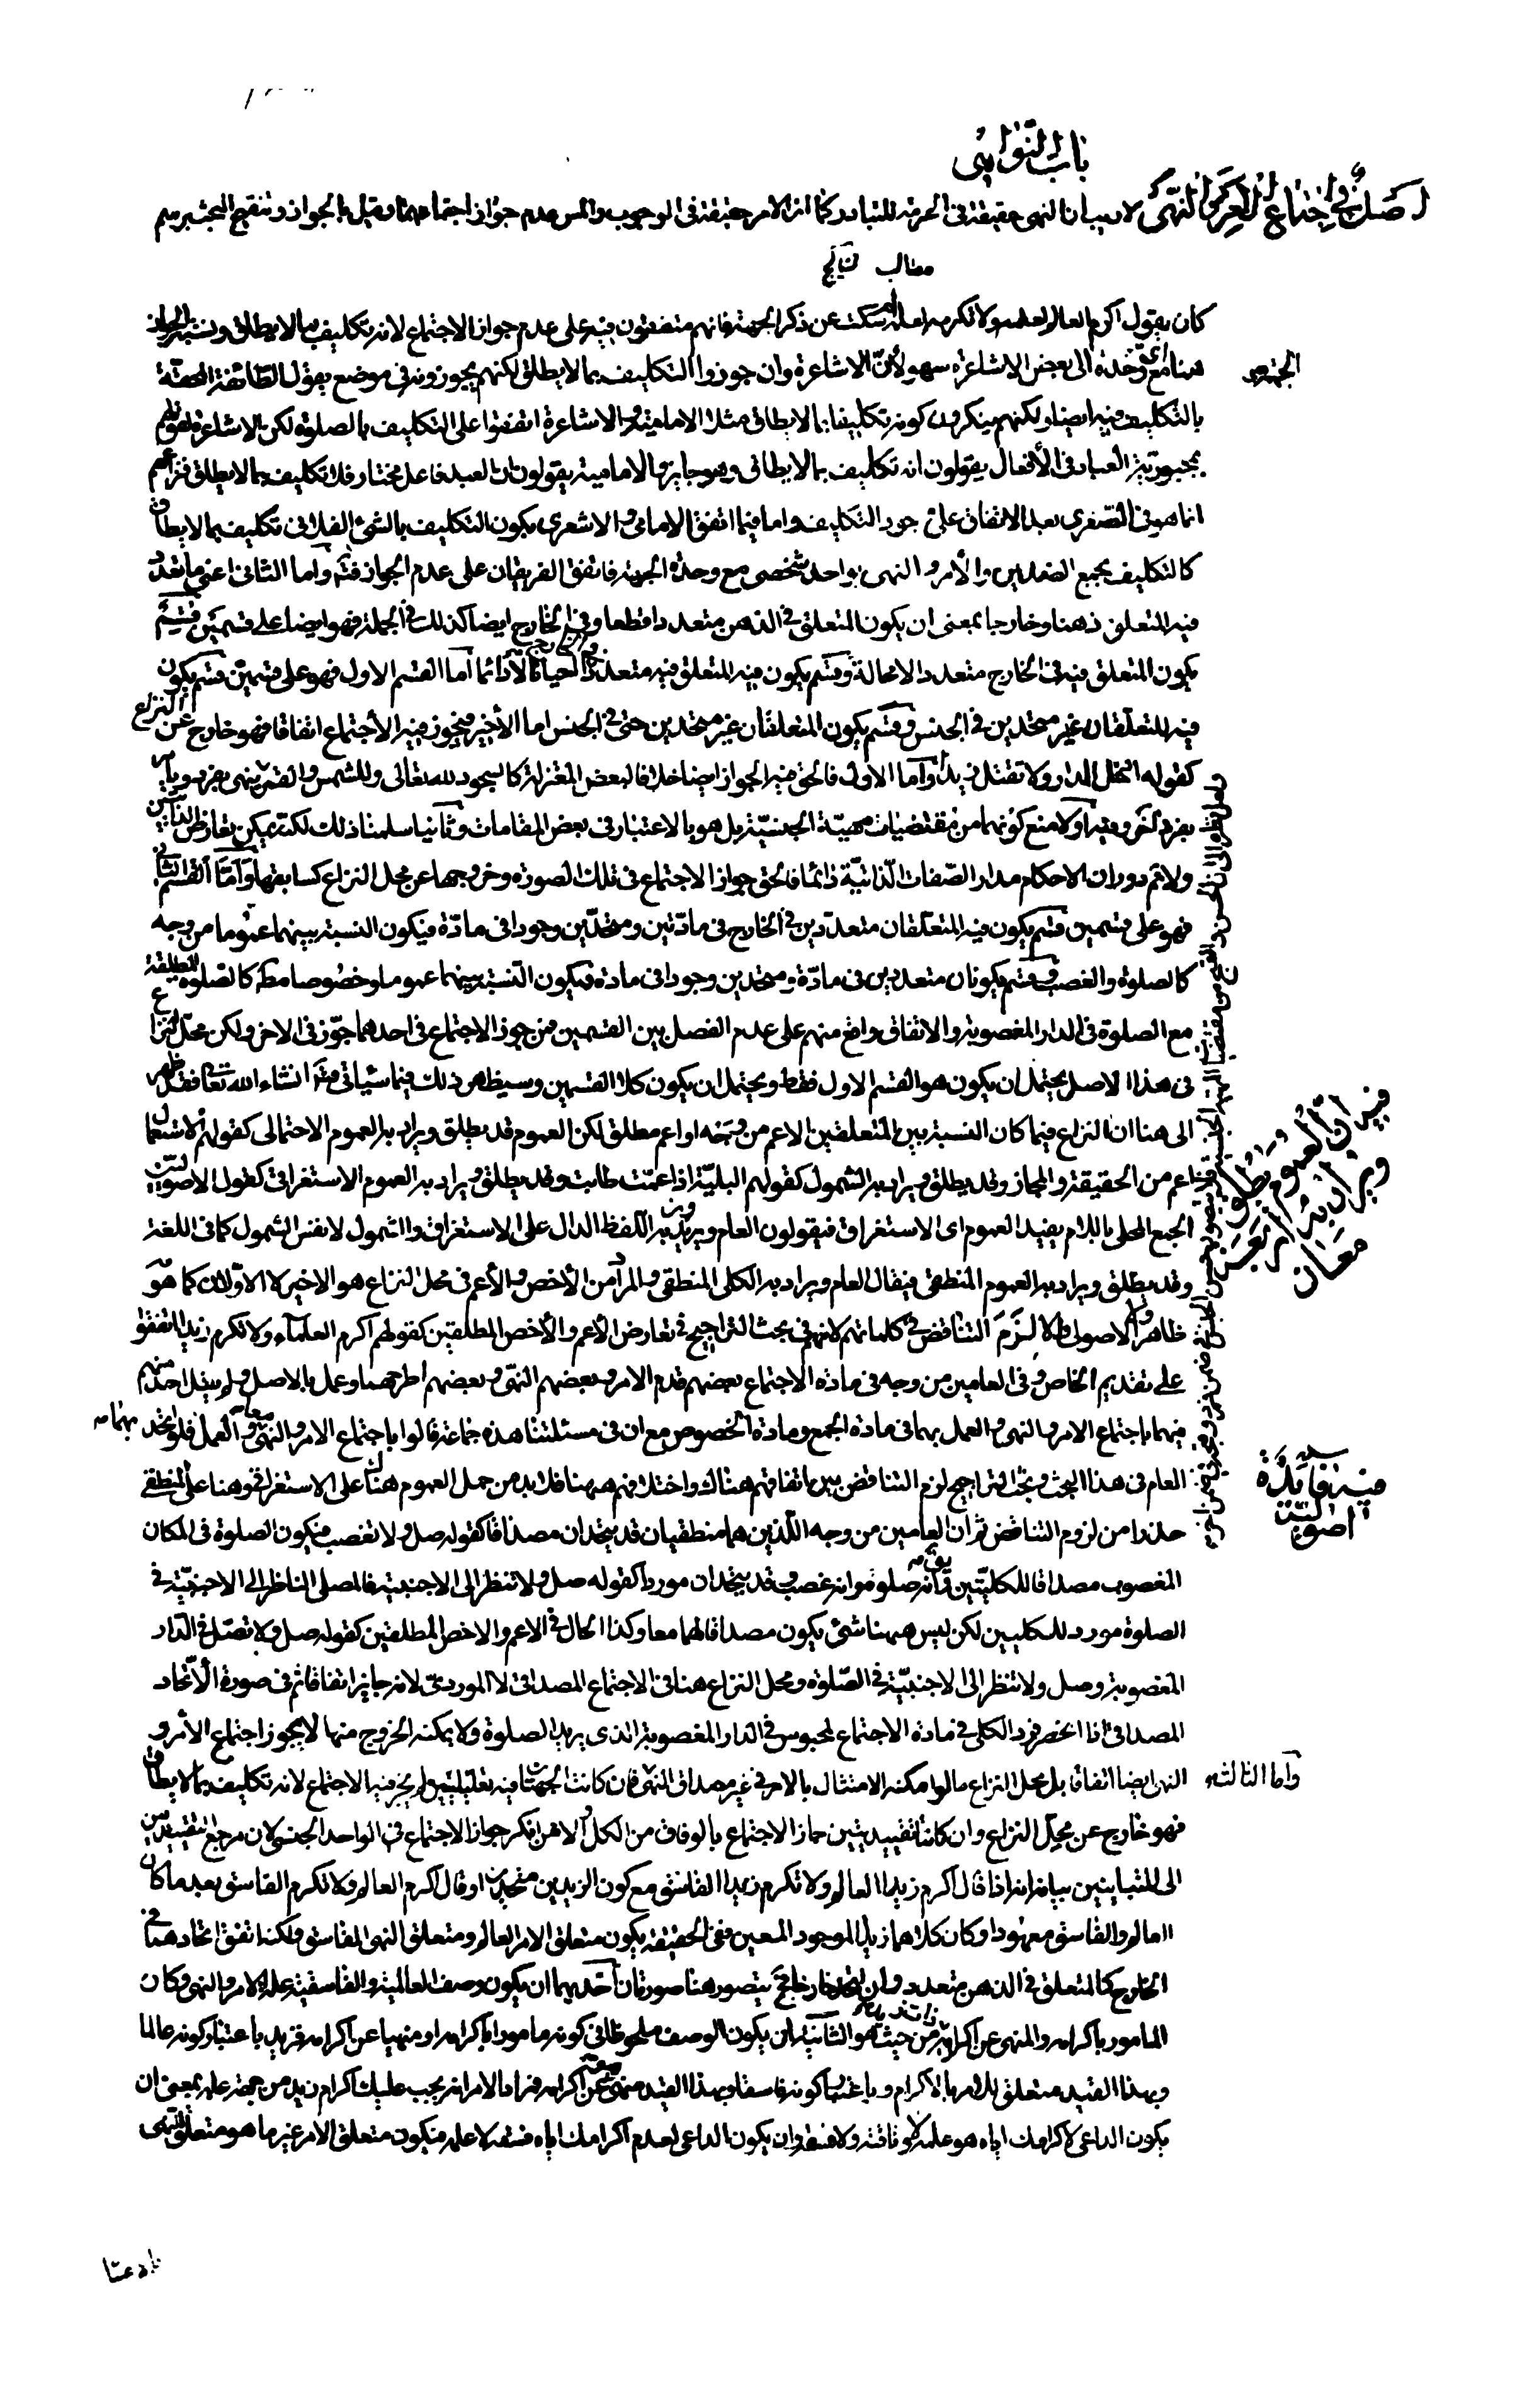 باب النواهى
اصل فى اجتماع الامر والنهى لا ريب ان النهى حقيقة فى الحرمة للتبادر كما ان الامر حقيقة فى الوجوب عدم جواز اجتماعهما وقيل بالجواز وتنقيح البحث برسم
مطالب
كان يقول اكرم العالم لعلمه ولا تكرمه لعلمه سكت عن ذكر الجهة فانهم متفقون فيه على عدم جواز الاجتماع لانه تكليف بما لا يطاق ونسبة الجواز
هنا مع وحدة الجهة الى بعض الاشاعرة سهو لأنّ الاشاعرة وان جوزوا التكليف بما لا يطلق لكنهم يجوزونه فى موضع يقول الطائفة المحقة
بالتكليف فيه ايضا ولكنهم ينكرون كونه تكليفا بما لا يطاق مثلا الامامية والاشاعرة اتفقوا على التكليف بالصلوة لكن الاشاعرة لقولهم
بمجبورية العباد فى الأفعال يقولون انه تكليف بما لا يطاق وهو جايز والامامية يقولون ان العبد فاعل مختار فلا تكليف بما لا يطاق فنزاعهم
انما هو فى الصغرى بعد الاتفاق على وجود التكليف واما فيما اتفق الامامى والاشعرى بكون التكليف بالشئ الفلانى تكليف بما لا يطاق
كالتكليف بجمع الضدين والأمر والنهى بواحد شخصى مع وحدة الجهة فاتفق الفريقان على عدم الجواز فيه واما الثانى اعنى ما تعدد
فيه المتعلق ذهنا وخارجا بمعنى ان يكون المتعلق فى الذهن متعددا قطعا وفى الخارج ايضا كذلك فى الجملة فهو ايضا على قسمين قسم
يكون المتعلق فيه فى الخارج متعددا لا محالة وقسم يكون فيه المتعلق فيه متعددا احيانا لا دائما اما القسم الاول فهو على قسمين قسم يكون
فيه المتعلقان غير متحدين فى الجنس وقسم يكون المتعلقان غير متحدين حتى فى الجنس اما الأخير فيجوز فيه الأجتماع اتفاقا فهو خارج عن النزاع
كقوله ادخل الدار ولا تقتل زيدا واما الاول فالحق فيه الجواز ايضا خلافا لبعض المعتزلة كالسجود لله تعالى وللشمس والقمر
بفرد آخر وفيه اولا منع كونهما من مقتضيات مهية الجنسية بل هو بالاعتبار فى بعض المقامات وثانيا سلمنا ذلك لكنه يمكن تعارض
ولا ثم دوران الاحكام مدار الصفات الذاتية دائما فالحق جواز الاجتماع فى تلك الصورة وخروجها عن محل النزاع كسابقها وأما القسم الثانى
فهو على قسمين قسم يكون فيه المتعلقان متعددين فى الخارج فى مادتين ومتحدين وجودا فى مادة فيكون النسبة بينهما عموما من وجه
كالصلوة والغصب وقسم يكونان متعددين فى مادة ومتحدين وجودا فى مادة فيكون النسبة بينهما عموما وخصوصا مطلقا كالصلوة المطلقة
مع الصلوة فى الدار المغصوبة والاتفاق واقع منهم على عدم الفصل بين القسمين فمن جوز الاجتماع فى احدهما جوز فى الاخر ولكن محل النزاع
فى هذا الاصل يحتمل ان يكون هو القسم الاول فقط ويحتمل ان يكون كلا القسمين وسيظهر ذلك فيما سيأتى انشاء الله تعا فقد ظهر
الى هنا ان النزاع فيما كان النسبة بين المتعلقين الاعم من وجه او اعم مطلق لكن العموم قد يطلق ويراد به العموم الاحتمالى كقولهم الاستعمال
اعم من الحقيقة والمجاز وقد يطلق ويراد به الشمول كقولهم البلية اذا عمت طابت وقد يطلق ويراد به العموم الاستغراقى كقول الاصوليين
الجمع المحلى باللام يفيد العموم اى الاستغراق فيقولون العام ويريدون به اللفظ الدال على الاستغراق والشمول لا نفس الشمول كما فى اللغة
وقد يطلق ويراد به العموم المنطقى فيقال العام ويراد به الكلى المنطقى والمراد من الأخص والأعم فى محل النزاع هو الاخير لا الاولان كما هو
ظاهر الاصولى والا لزم التناقض فى كلماتهم لانهم فى بحث التراجيح فى تعارض الأعم والأخص المطلقين كقولهم اكرم العلماء ولا تكرم زيدا اتفقوا
على تقديم الخاص وفى العامين من وجه فى مادة الاجتماع بعضهم قدم الامر وبعضهم النهى وبعضهم اطرحهما وعمل بالاصل ولم يقل احد منهم
فيهما باجتماع الامر والنهى والعمل بهما فى مادة الجمع ومادة الخصوص مع ان فى مسئلتنا هذه جماعة قالوا باجتماع الامر والنهى معا والعمل بهما فلو اتحد
العام فى هذا البحث وبحث التراجيح لزم التناقض بين اتفاقهم هناك واختلافهم ههنا فلا بد من حمل العموم هناك على الاستغراقى وهنا على المنطقى
حذرا من لزوم التناقض ثم ان العامين من وجه اللذين هما منطقيان قد يتحدان مصداقا كقوله صل ولا تغصب فيكون الصلوة فى المكان
المغصوب مصداقا للكليتين يق انه صلوة وانه غصب وقد يتحدان موردا كقوله صل ولا تنظر الى الاجنبية فالمصلى الناظر الى الاجنبية فى
الصلوة مورد للكليين لكن ليس ههنا شئ يكون مصداقا لهما معا وكذا الحال فى الاعم والاخص المطلقين كقوله صل ولا تصل فى الدار
المغصوبة وصل ولا تنظر الى الاجنبية فى الصلوة ومحل النزاع هنا فى الاجتماع المصداقى لا الموردى لانه جايز اتفاقا ثم فى صورة الأتحاد
المصداقى اذا انحصر فرد الكلى فى مادة الاجتماع كمحبوس فى الدار المغصوبة الذى يريد الصلوة ولا يمكنه الخروج منها لا يجوز اجتماع الأمر و
النهى ايضا اتفاقا بل محل النزاع ما لو امكنه الامتثال بالامر فى غير مصداق النهى فان كانت الجهتان فيه تعليليتين لم يجز فيه الاجتماع لانه تكليف بما لا يطاق
فهو خارج عن محل النزاع وان كانتا تقييديتين جاز الاجتماع بالوفاق من الكل الا من انكر جواز الاجتماع فى الواحد الجنسى لان مرجع التقييدين
الى المتباينين بيانه انه اذا قال اكرم زيدا العالم ولا تكرم زيدا الفاسق مع كون الزيدين متحدين او قال اكرم العالم ولا تكرم الفاسق بعد ما كان
العالم والفاسق معهودا وكان كلاهما زيد الموجود المعين ففى الحقيقة يكون متعلق الامر العالم ومتعلق النهى الفاسق ولكنه اتفق اتحادهما فى
الخارج فالمتعلق فى الذهن متعدد وان اتحد خارجا يتصور هنا صورتان احديهما ان يكون وصف العالمية والفاسقية علة للامر والنهى وكان
المامور باكرامه والمنهى عن اكرامه ذات زيد من حيث هو الثانية ان يكون الوصف ملحوظا فى كونه مامورا باكرامه او منهيا عن اكرامه فزيد باعتبار كونه عالما
وبهذا القيد متعلق للامر بالاكرام وباعتبار كونه فاسقا وبهذا القيد منهى عن اكرامه فمراد الامر انه يجب عليك اكرام زيد من جهة علمه بمعنى ان
يكون الداعى لاكرامك اياه هو علمه لا رفاقته ولا فسقه وان يكون الداعى لعدم اكرامك اياه فسقه لا علمه فيكون متعلق الامر غير ما هو متعلق النهى
فيه ان العموم يطلق ويراد به اربعة معان
فيه فائدة اصولية
واما الثالث